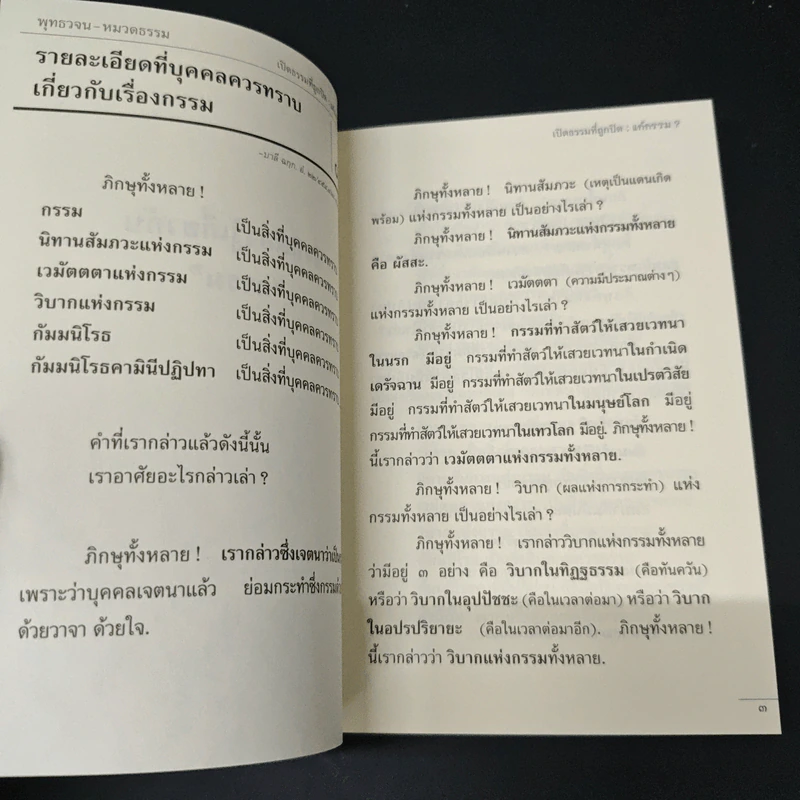 พุทธวจน-หมวดธรรม
เปิดธรรมที่ถูกปิด :
รายละเอียดที่บุคคลควรทราบ
เกี่ยวกับเรื่องกรรม
-บาลี ฉกฺก. อํ.
ภิกษุทั้งหลาย !
กรรม เป็นสิ่งที่บุคคลควรทราบ
นิทานสัมภวะแห่งกรรม เป็นสิ่งที่บุคคลควรทราบ
เวมัตตตาแห่งกรรม เป็นสิ่งที่บุคคลควรทราบ
วิบากแห่งกรรม เป็นสิ่งที่บุคคลควรทราบ
กัมมนิโรธ เป็นสิ่งที่บุคคลควรทราบ
กัมมนิโรธคามินีปฏิปทา เป็นสิ่งที่บุคคลควรทราบ
คำที่เรากล่าวแล้วดังนี้นั้น
เราอาศัยอะไรกล่าวเล่า ?
ภิกษุทั้งหลาย ! เรากล่าวซึ่งเจตนาว่าเป็น
เพราะว่าบุคคลเจตนาแล้ว ย่อมกระทำซึ่งกรรม
ด้วยวาจา ด้วยใจ.
เปิดธรรมที่ถูกปิด : แก้กรรม ?
ภิกษุทั้งหลาย ! นิทานสัมภวะ (เหตุเป็นแดนเกิด
พร้อม) แห่งกรรมทั้งหลาย เป็นอย่างไรเล่า ?
ภิกษุทั้งหลาย ! นิทานสัมภวะแห่งกรรมทั้งหลาย
คือ ผัสสะ.
ภิกษุทั้งหลาย ! เวมัตตตา (ความมีประมาณต่างๆ)
แห่งกรรมทั้งหลาย เป็นอย่างไรเล่า ?
ภิกษุทั้งหลาย ! กรรมที่ทำสัตว์ให้เสวยเวทนา
ในนรก มีอยู่ กรรมที่ทำสัตว์ให้เสวยเวทนาในกำเนิด
เดรัจฉาน มีอยู่ กรรมที่ทำสัตว์ให้เสวยเวทนาในเปรตวิสัย
มีอยู่ กรรมที่ทำสัตว์ให้เสวยเวทนาในมนุษย์โลก มีอยู่
กรรมที่ทำสัตว์ให้เสวยเวทนาในเทวโลก มีอยู่. ภิกษุทั้งหลาย !
นี้เรากล่าวว่า เวมัตตตาแห่งกรรมทั้งหลาย.
ภิกษุทั้งหลาย ! วิบาก (ผลแห่งการกระทำ) แห่ง
กรรมทั้งหลาย เป็นอย่างไรเล่า ?
ภิกษุทั้งหลาย ! เรากล่าววิบากแห่งกรรมทั้งหลาย
ว่ามีอยู่ ๓ อย่าง คือ วิบากในทิฏฐธรรม (คือทันควัน)
หรือว่า วิบากในอุปปัชชะ (คือในเวลาต่อมา) หรือว่า วิบาก
ในอปรปริยายะ (คือในเวลาต่อมาอีก). ภิกษุทั้งหลาย !
นี้เรากล่าวว่า วิบากแห่งกรรมทั้งหลาย.
๓